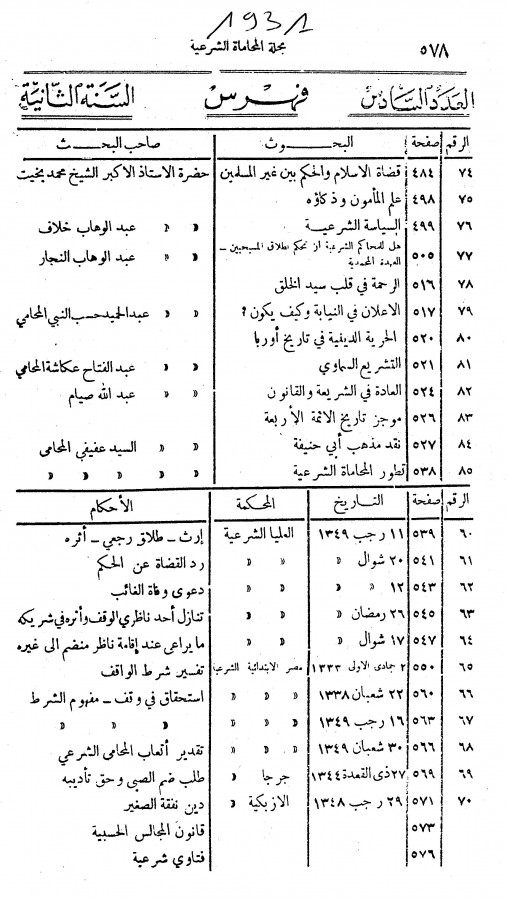 1931
٥٧٨ مجلة المحاماة الشرعية
العدد السادس فهرس السنة الثانية
الرقم صفحة البحوث صاحب البحث
٧٤ ٤٨٤ قضاة الاسلام والحكم بين غير المسلمين حضرة الاستاذ الاكبر الشيخ محمد بخيت
٧٥ ٤٩٨ علم المأمون وذكاؤه
٧٦ ٤٩٩ السياسة الشرعية » » عبد الوهاب خلاف
٧٧ ٥٠٥ هل للمحاكم الشرعية أن تحكم بطلاق المسيحيين ــ العهدة المحمدية » » عبد الوهاب النجار
٧٨ ٥١٦ الرحمة في قلب سيد الخلق
٧٩ ٥١٧ الاعلان في النيابة وكيف يكون؟ » » عبد الحميد حسب النبي المحامي
٨٠ ٥٢٠ الحرية الدينية في تاريخ أوربا
٨١ ٥٢١ التشريع السماوي » » عبد الفتاح عكاشة المحامي
٨٢ ٥٢٤ العادة في الشريعة والقانون » » عبد الله صيام
٨٣ ٥٢٦ موجز تاريخ الائمة الأربعة
٨٤ ٥٢٧ نقد مذهب أبي حنيفة » » السيد عفيفي المحامى
٨٥ ٥٣٨ تطور المحاماة الشرعية » » » » »
الرقم صفحة التاريخ المحكمة الأحكام
٦٠ ٥٣٩ ١١ رجب ١٣٤٩ العليا الشرعية إرث ــ طلاق رجعي ــ أثره
٦١ ٥٤١ ٢٠ شوال » » » رد القضاة عن الحكم
٦٢ ٥٤٣ ١٢ » » » » دعوى وفاة الغائب
٦٣ ٥٤٥ ٢٦ رمضان » » » تنازل أحد ناظري الوقف وأثره في شريكه
٦٤ ٥٤٧ ١٧ شوال » » » ما يراعى عند إقامة ناظر منضم الى غيره
٦٥ ٥٥٠ ٢ جمادى الاولى ١٣٣٣ مصر الابتدائية الشرعية تفسير شرط الواقف
٦٦ ٥٦٠ ٢٢ شعبان ١٣٣٨ » » » استحقاق في وقف ــ مفهوم الشرط
٦٧ ٥٦٣ ١٦ رجب ١٣٤٩ » » » » » »
٦٨ ٥٦٦ ٣٠ شعبان ١٣٤٩ » » » تقدير أتعاب المحامى الشرعي
٦٩ ٥٦٩ ٢٧ ذى القعدة ١٣٤٤ جرجا » طلب ضم الصبى وحق تأديبه
٧٠ ٥٧١ ٢٩ رجب ١٣٤٨ الازبكية » دين نفقة الصغير
٥٧٣ قانون المجالس الحسبية
٥٧٦ فتاوي شرعية